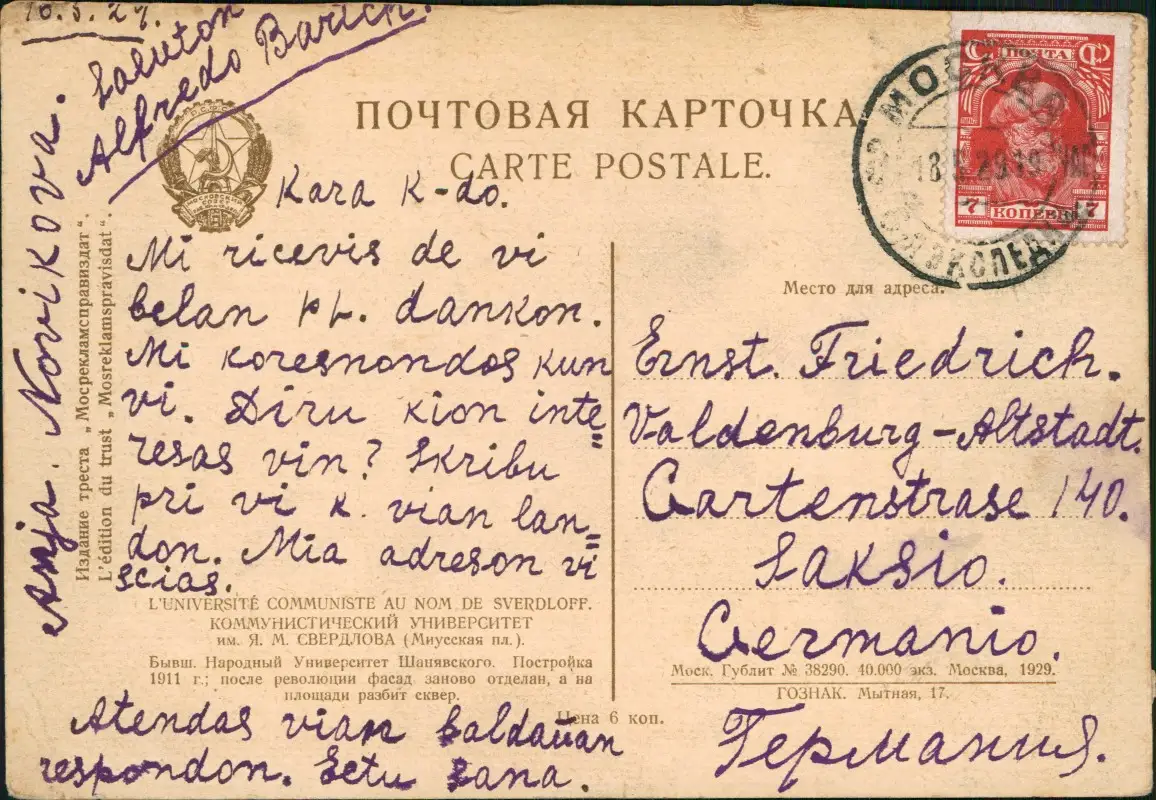 16.3.29.
Saluton
Alfredo Barich.
ПОЧТОВАЯ КАРТОЧКА
CARTE POSTALE.
ПОЧТА
7 КОПЕЕК 7
МОСКВА
18 29 19
Kara K-do.
Mi ricevis de vi
belan pk. dankon.
Mi korespondos kun
vi. Diru kion inte=
resas vin? Skribu
pri vi k. vian lan=
don. Mia adreson vi
scias.
Anja. Novikova.
Издание треста „Мосрекламсправиздат“.
L'édition du trust „Mosreklamspravisdat“.
L'UNIVERSITÉ COMMUNISTE AU NOM DE SVERDLOFF.
КОММУНИСТИЧЕСКИЙ УНИВЕРСИТЕТ
им. Я. М. СВЕРДЛОВА (Миусская пл.).
Бывш. Народный Университет Шанявского. Постройка
1911 г.; после революции фасад заново отделан, а на
площади разбит сквер.
Цена 6 коп.
Atendas vian baldaŭan
respondon. Estu sana.
Место для адреса.
Ernst. Friedrich.
Valdenburg-Altstadt.
Gartenstrase 140.
Saksio.
Germanio.
Моск. Гублит № 38290. 40.000 экз. Москва, 1929.
ГОЗНАК. Мытная, 17.
Германия.